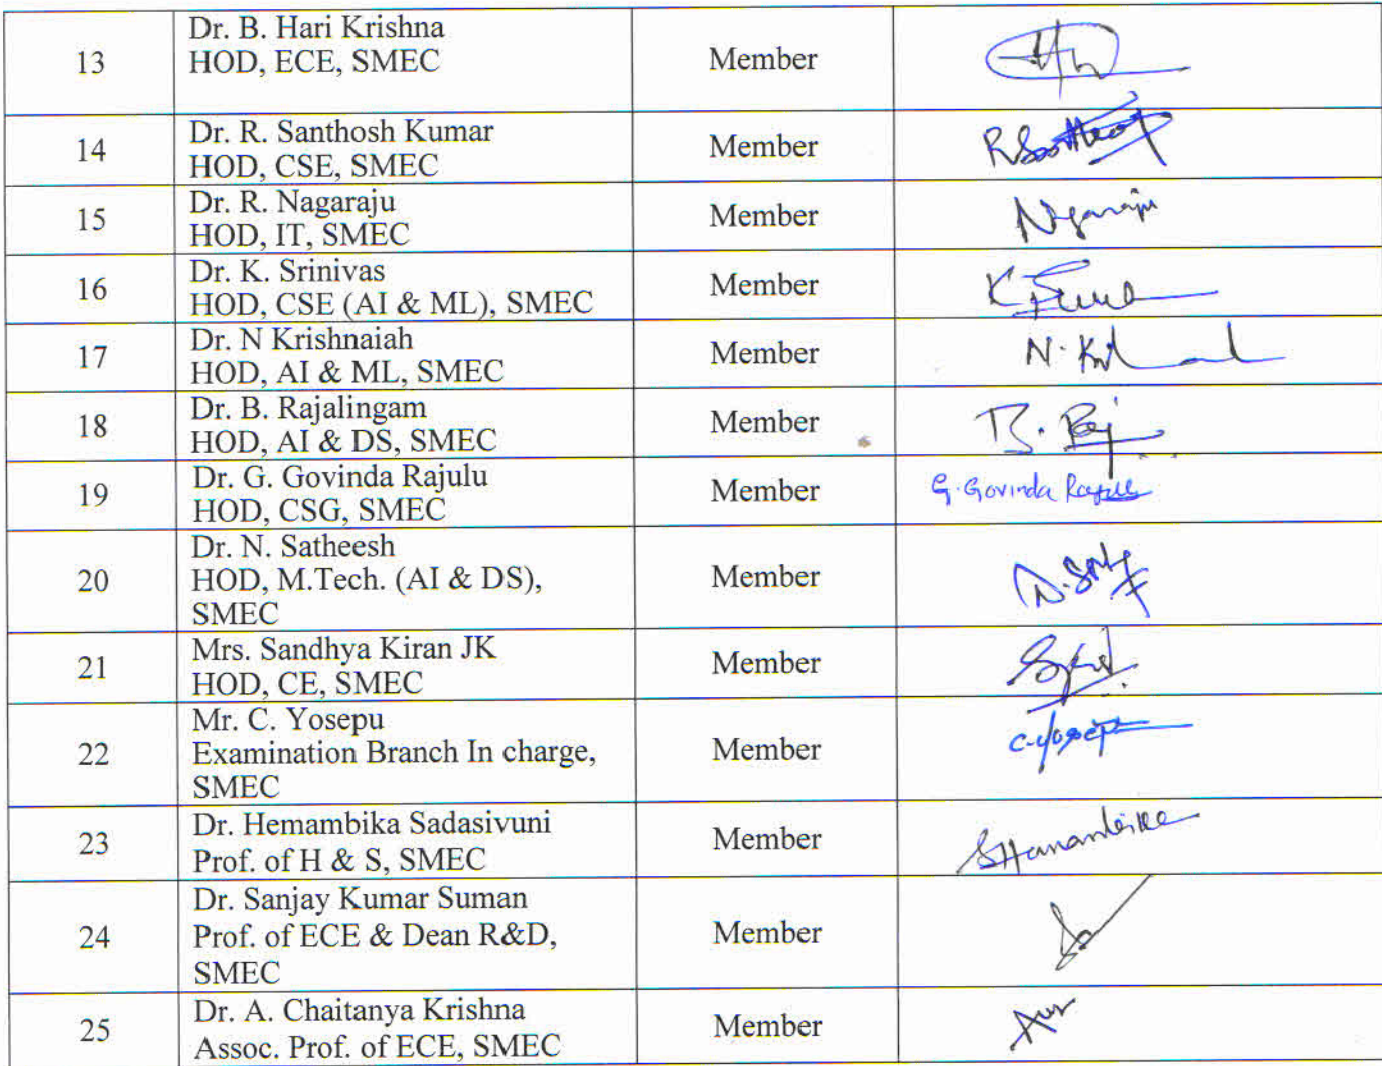 13
Dr. B. Hari Krishna
HOD, ECE, SMEC
Member
14
Dr. R. Santhosh Kumar
HOD, CSE, SMEC
Member
15
Dr. R. Nagaraju
HOD, IT, SMEC
Member
Nagaraju
16
Dr. K. Srinivas
HOD, CSE (AI & ML), SMEC
Member
17
Dr. N Krishnaiah
HOD, AI & ML, SMEC
Member
18
Dr. B. Rajalingam
HOD, AI & DS, SMEC
Member
B. Raj
19
Dr. G. Govinda Rajulu
HOD, CSG, SMEC
Member
G. Govinda Rajulu
20
Dr. N. Satheesh
HOD, M.Tech. (AI & DS),
SMEC
Member
21
Mrs. Sandhya Kiran JK
HOD, CE, SMEC
Member
22
Mr. C. Yosepu
Examination Branch In charge,
SMEC
Member
C. Yosepu
23
Dr. Hemambika Sadasivuni
Prof. of H & S, SMEC
Member
24
Dr. Sanjay Kumar Suman
Prof. of ECE & Dean R&D,
SMEC
Member
25
Dr. A. Chaitanya Krishna
Assoc. Prof. of ECE, SMEC
Member